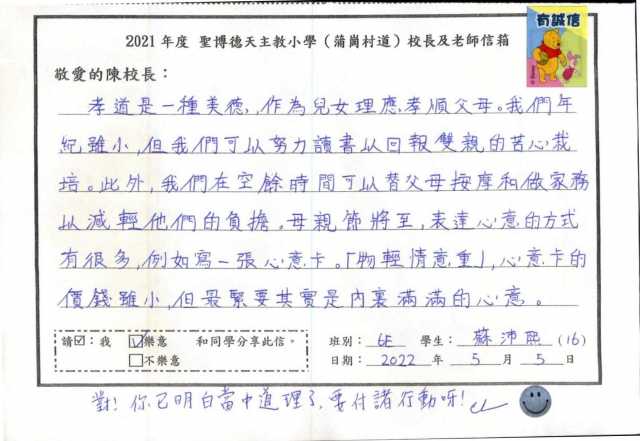 有誠信
2021年度 聖博德天主教小學（蒲崗村道）校長及老師信箱
敬愛的陳校長：
孝道是一種美德，作為兒女理應孝順父母。我們年
紀雖小，但我們可以努力讀書以回報雙親的苦心栽
培。此外，我們在空餘時間可以替父母按摩和做家務
以減輕他們的負擔。母親節將至，表達心意的方式
有很多，例如寫一張心意卡。「物輕情意重」，心意卡的
價錢雖小，但最緊要其實是內裏滿滿的心意。
請☑：我 ☑樂意 和同學分享此信。 班別：6E 學生：蘇沛熙 (16)
□不樂意 日期：2022 年 5 月 5 日
對！你已明白當中道理了，要付諸行動呀！